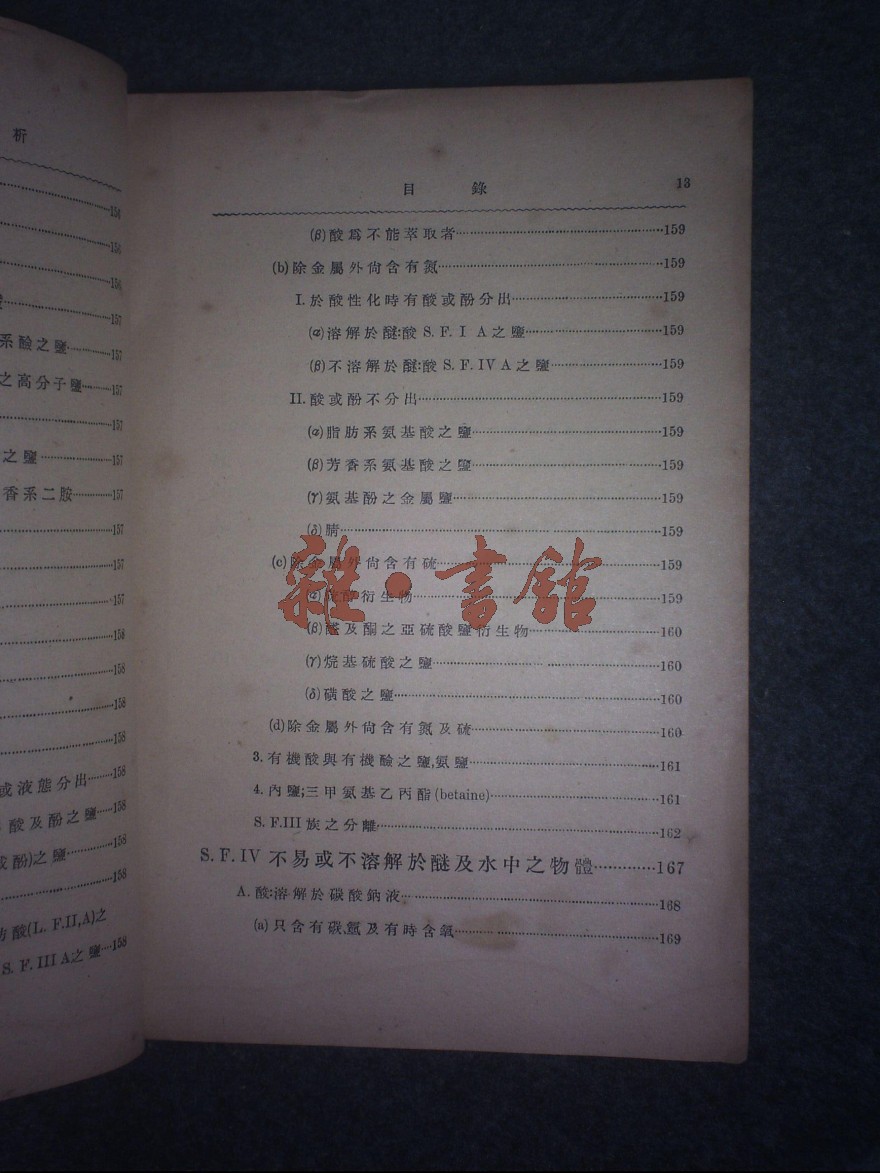 析
154
156
156
157
系鹼之鹽············157
之高分子鹽·········157
157
之鹽··················157
香系二胺············157
157
157
157
158
158
158
158
或液態分出·········158
酸及酚之鹽·········158
酚)之鹽···············158
158
酸(L. F.II,A)之
S. F. III A之鹽····158
目 錄 13
(β)酸爲不能萃取者··················159
(b)除金屬外尙含有氮··················159
I.於酸性化時有酸或酚分出··················159
(α)溶解於醚:酸 S. F. I A 之鹽··················159
(β)不溶解於醚:酸 S. F. IV A 之鹽··················159
II.酸或酚不分出··················159
(α)脂肪系氨基酸之鹽··················159
(β)芳香系氨基酸之鹽··················159
(γ)氨基酚之金屬鹽··················159
(δ)腈··················159
(c)除金屬外尙含有硫··················159
(α)硫醇衍生物··················159
(β)醛及酮之亞硫酸鹽衍生物··················160
(γ)烷基硫酸之鹽··················160
(δ)磺酸之鹽··················160
(d)除金屬外尙含有氮及硫··················160
3.有機酸與有機鹼之鹽,氨鹽··················161
4.內鹽;三甲氨基乙丙酯(betaine)··················161
S. F.III 族之分離··················162
S. F. IV 不易或不溶解於醚及水中之物體············167
A.酸:溶解於碳酸鈉液··················168
(a)只含有碳,氫及有時含氧··················169
雜·書館